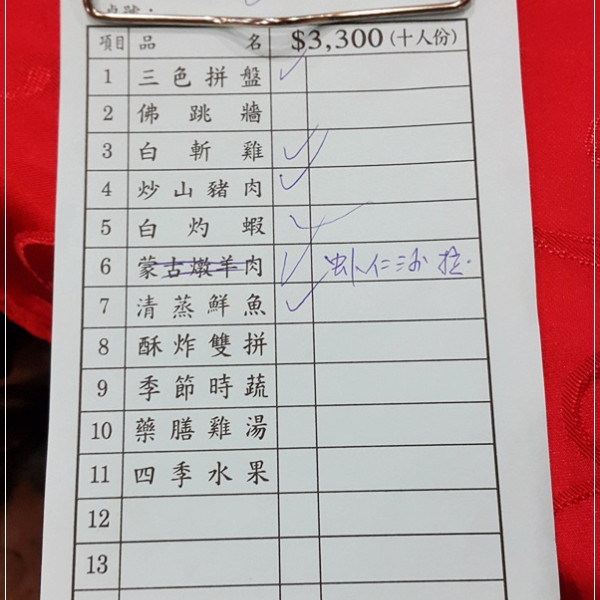 桌號：
項目 品 名 $3,300 (十人份)
1 三色拼盤 ✓
2 佛跳牆
3 白斬雞 ✓
4 炒山豬肉 ✓
5 白灼蝦 ✓
6 蒙古燉羊肉 ✓ 虾仁沙拉.
7 清蒸鮮魚 ✓
8 酥炸雙拼
9 季節時蔬
10 藥膳雞湯
11 四季水果
12
13